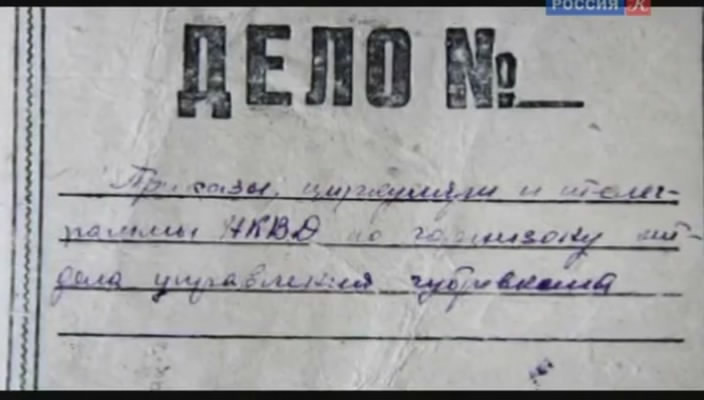 РОССИЯ К
ДЕЛО №
Приказы, циркуляры и телег-
раммы НКВД по гарнизону от-
дела управления губревкома